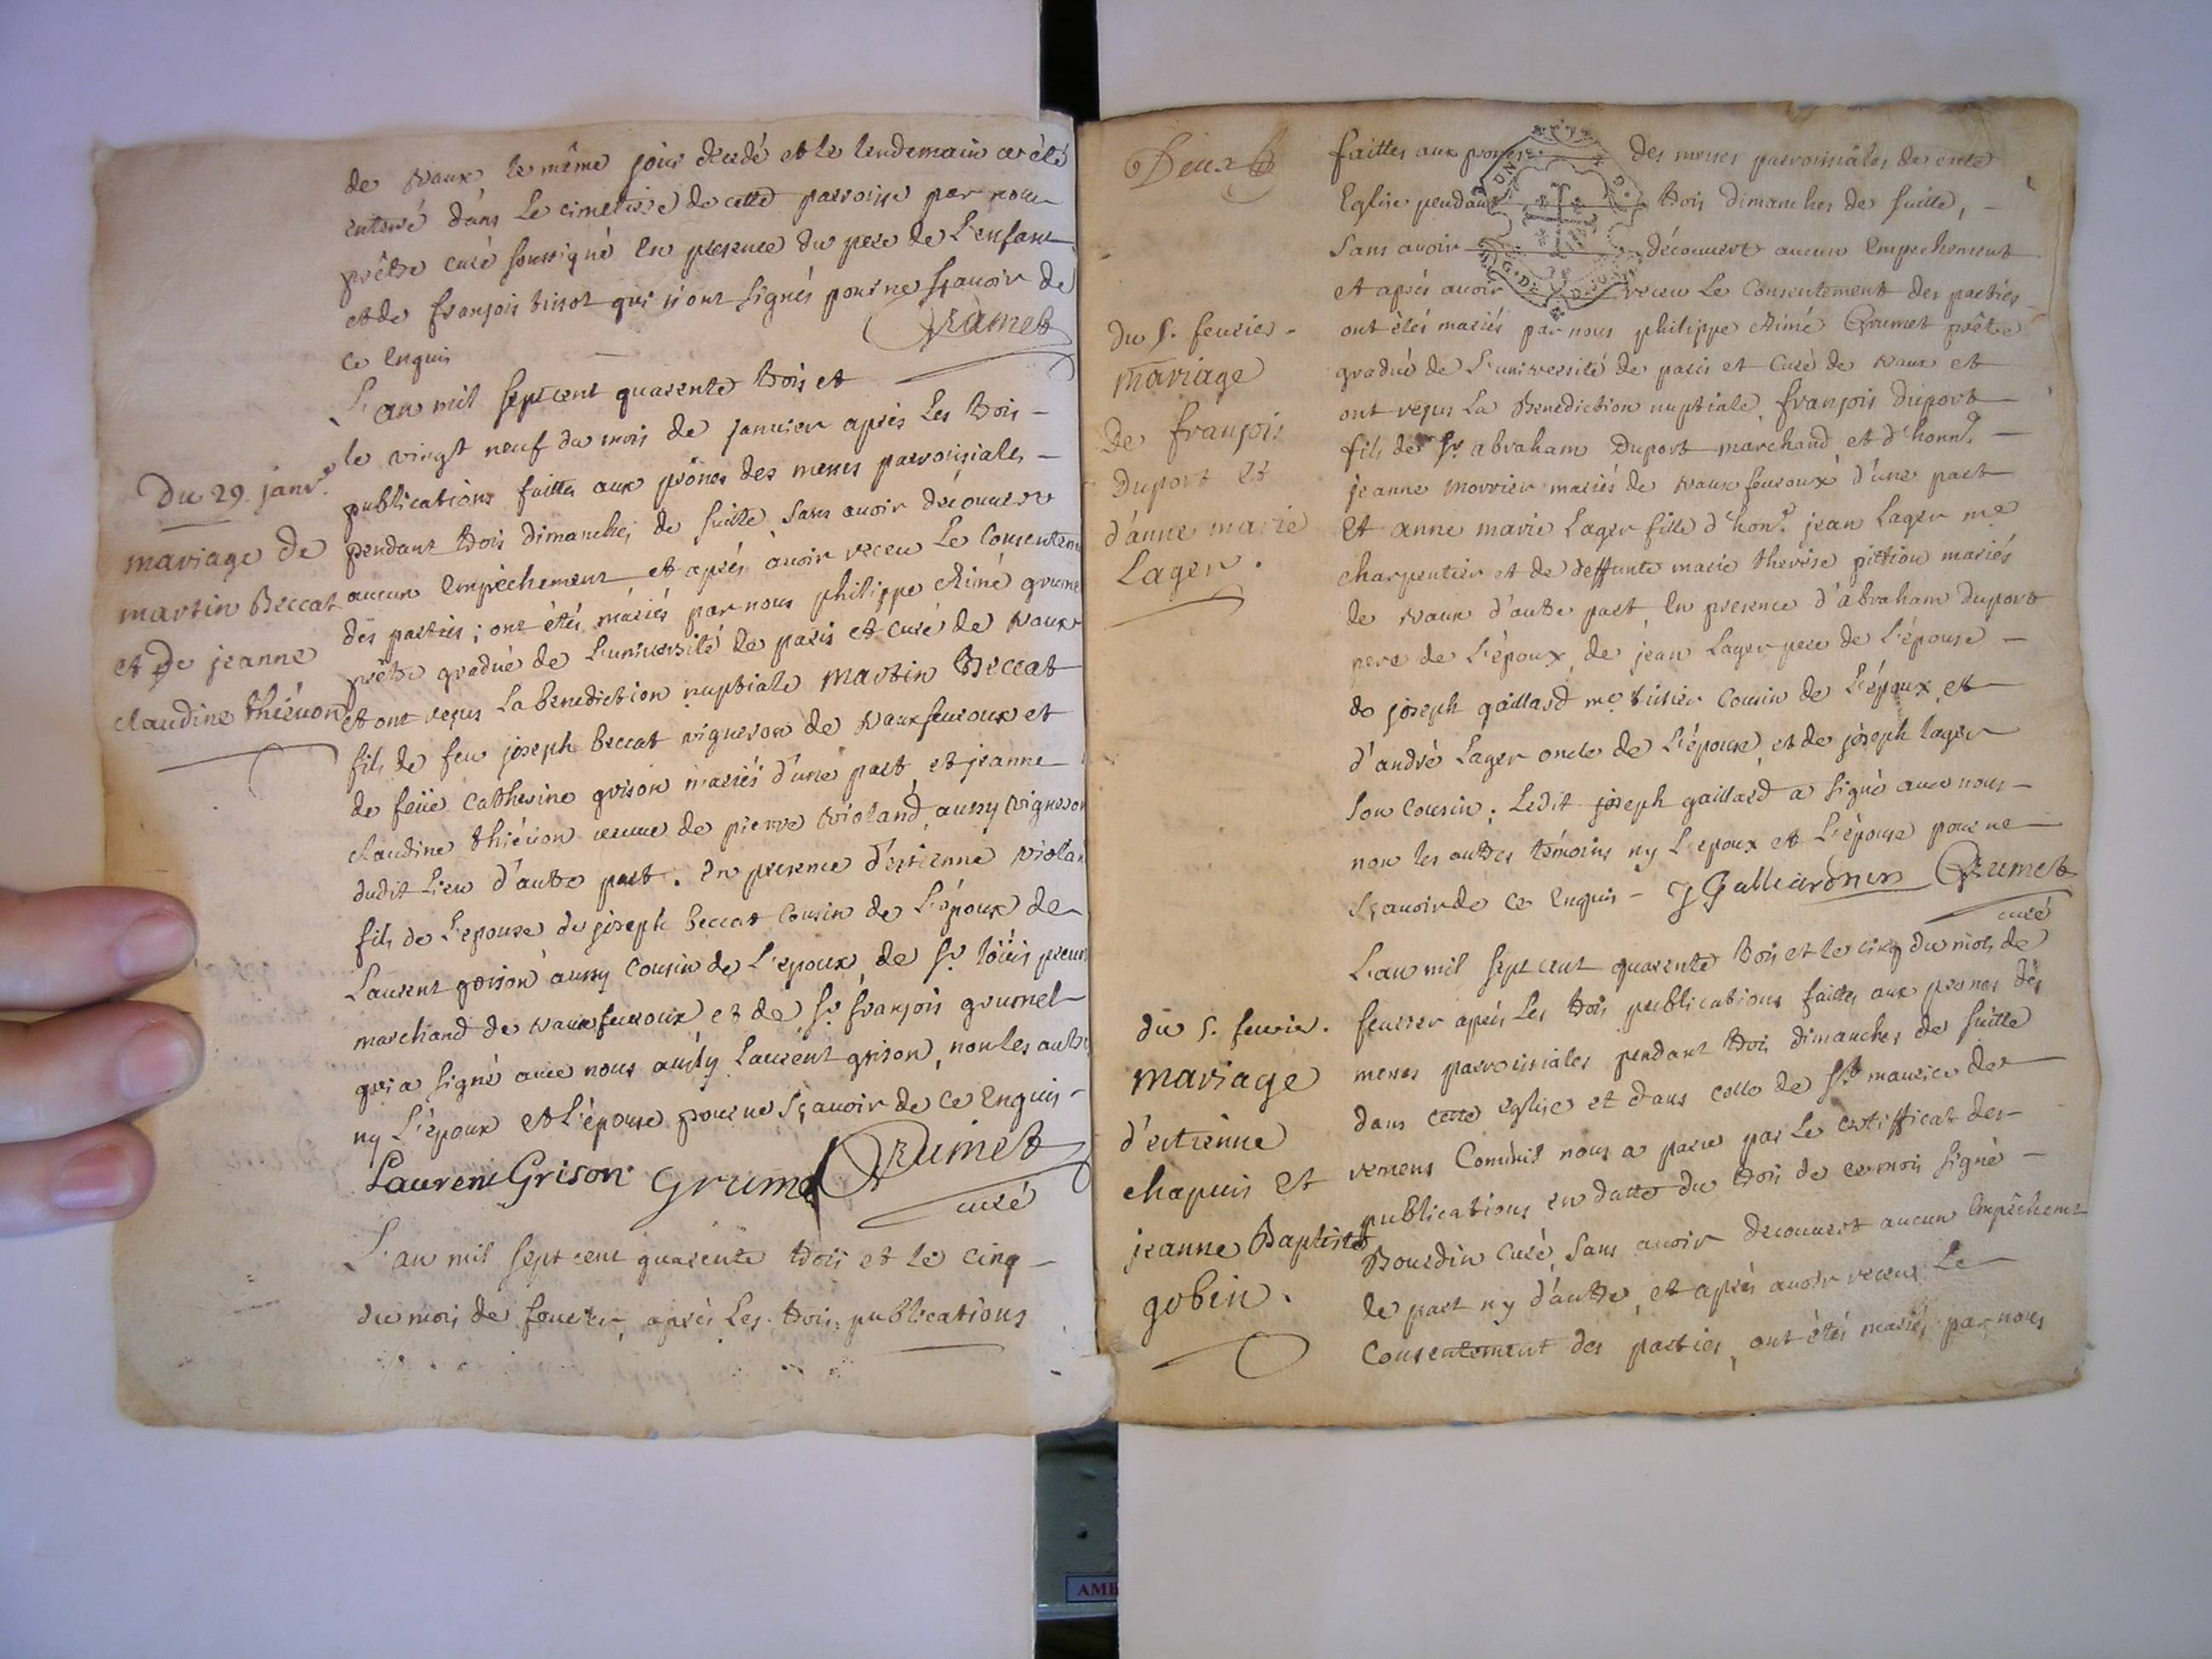 de vaux le même jour decedé et le lendemain a été
enterré dans le cimetiere de cette parroisse par nous
prêtre curé soussigné en presence du pere de l'enfant
et de françois tissot qui n'ont signés pour ne sçavoir de
ce enquis
Grumet
Du 29. janv.r
mariage de
martin Beccat
et De jeanne
claudine thiévon
L'an mil sept cent quarente trois et
le vingt neuf du mois de janvier après les trois
publications faittes aux prônes des messes parroissiales
pendant trois dimanches de suitte sans avoir découvert
aucun empêchement et après avoir receu le consentem
des parties; ont étés mariés par nous philippe Aimé grume
prêtre gradué de l'université de paris et curé de vaux
et ont reçus la benediction nuptiale martin Beccat
fils de feu joseph beccat vigneron de vauxfevroux et
de feüe catherine grison mariés d'une part, et jeanne
claudine thiévon veuve de pierre violand aussy vigneron
dudit lieu d'autre part. en presence d'estienne violan
fils de l'epouse de joseph beccat cousin de l'époux de
Laurent grison aussy cousin de l'epoux, de sr. loüis
marchand de vauxfevroux et de sr. françois grumet
qui a signé avec nous laurent grison, non les autr
ny l'époux et l'épouse pour ne sçavoir de ce enquis
Laurent Grison Grumet Grumet
curé
L'an mil sept cent quarente trois et le cinq
du mois de fevrier, après les trois publications
Deux
faittes aux prones des messes parroissiales de cette
Eglise pendant trois dimanches de suitte,
sans avoir découvert aucun empechement
et après avoir receu le consentement des parties
ont étés mariés par nous philippe Aimé Grumet prêtre
gradué de l'université de paris et curé de vaux et
ont reçus la Benediction nuptiale, françois duport
fils de sr. abraham Duport marchand et d'honn.e
jeanne morrier mariés de vaux fevroux d'une part
et anne marie Lager fille d'hon.e jean Lager me
charpentier et de deffunte marie therese pittion mariés
de vaux d'autre part, en presence d'abraham duport
pere de l'époux, de jean Lager pere de l'épouse
de joseph gaillard me cousin de l'époux, et
d'andré Lager oncle de l'épouse, et de joseph lager
son cousin; ledit joseph gaillard a signé avec nous
non les autres témoins ny l'epoux et l'épouse pour ne
sçavoir de ce enquis J Grumet
curé
du 5. fevrier
mariage
De françois
Duport et
d'anne marie
Lager.
L'an mil sept cent quarente trois et le cinq du mois de
fevrier après les trois publications faittes aux prones des
messes parroissiales pendant trois dimanches de suitte
dans cette eglise et dans celle de st. maurice de
remens comme il nous a paru par le certifficat des
publications en datte du trois de ce mois signé
Bourdin curé, sans avoir decouvert aucun empêchemt
de part ny d'autre, et après avoir receu le
consentement des parties, ont étés mariés par nous
du 5. fevrier.
mariage
d'estienne
chapuis et
jeanne Baptiste
gobin.
AMB